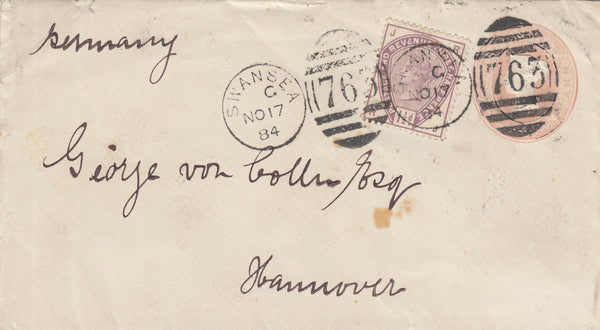 Germany
SWANSEA
C
NO 17
84
763
J R
AND REVENUE
C
NO 17
84
763
George von Colln Esq
Hannover